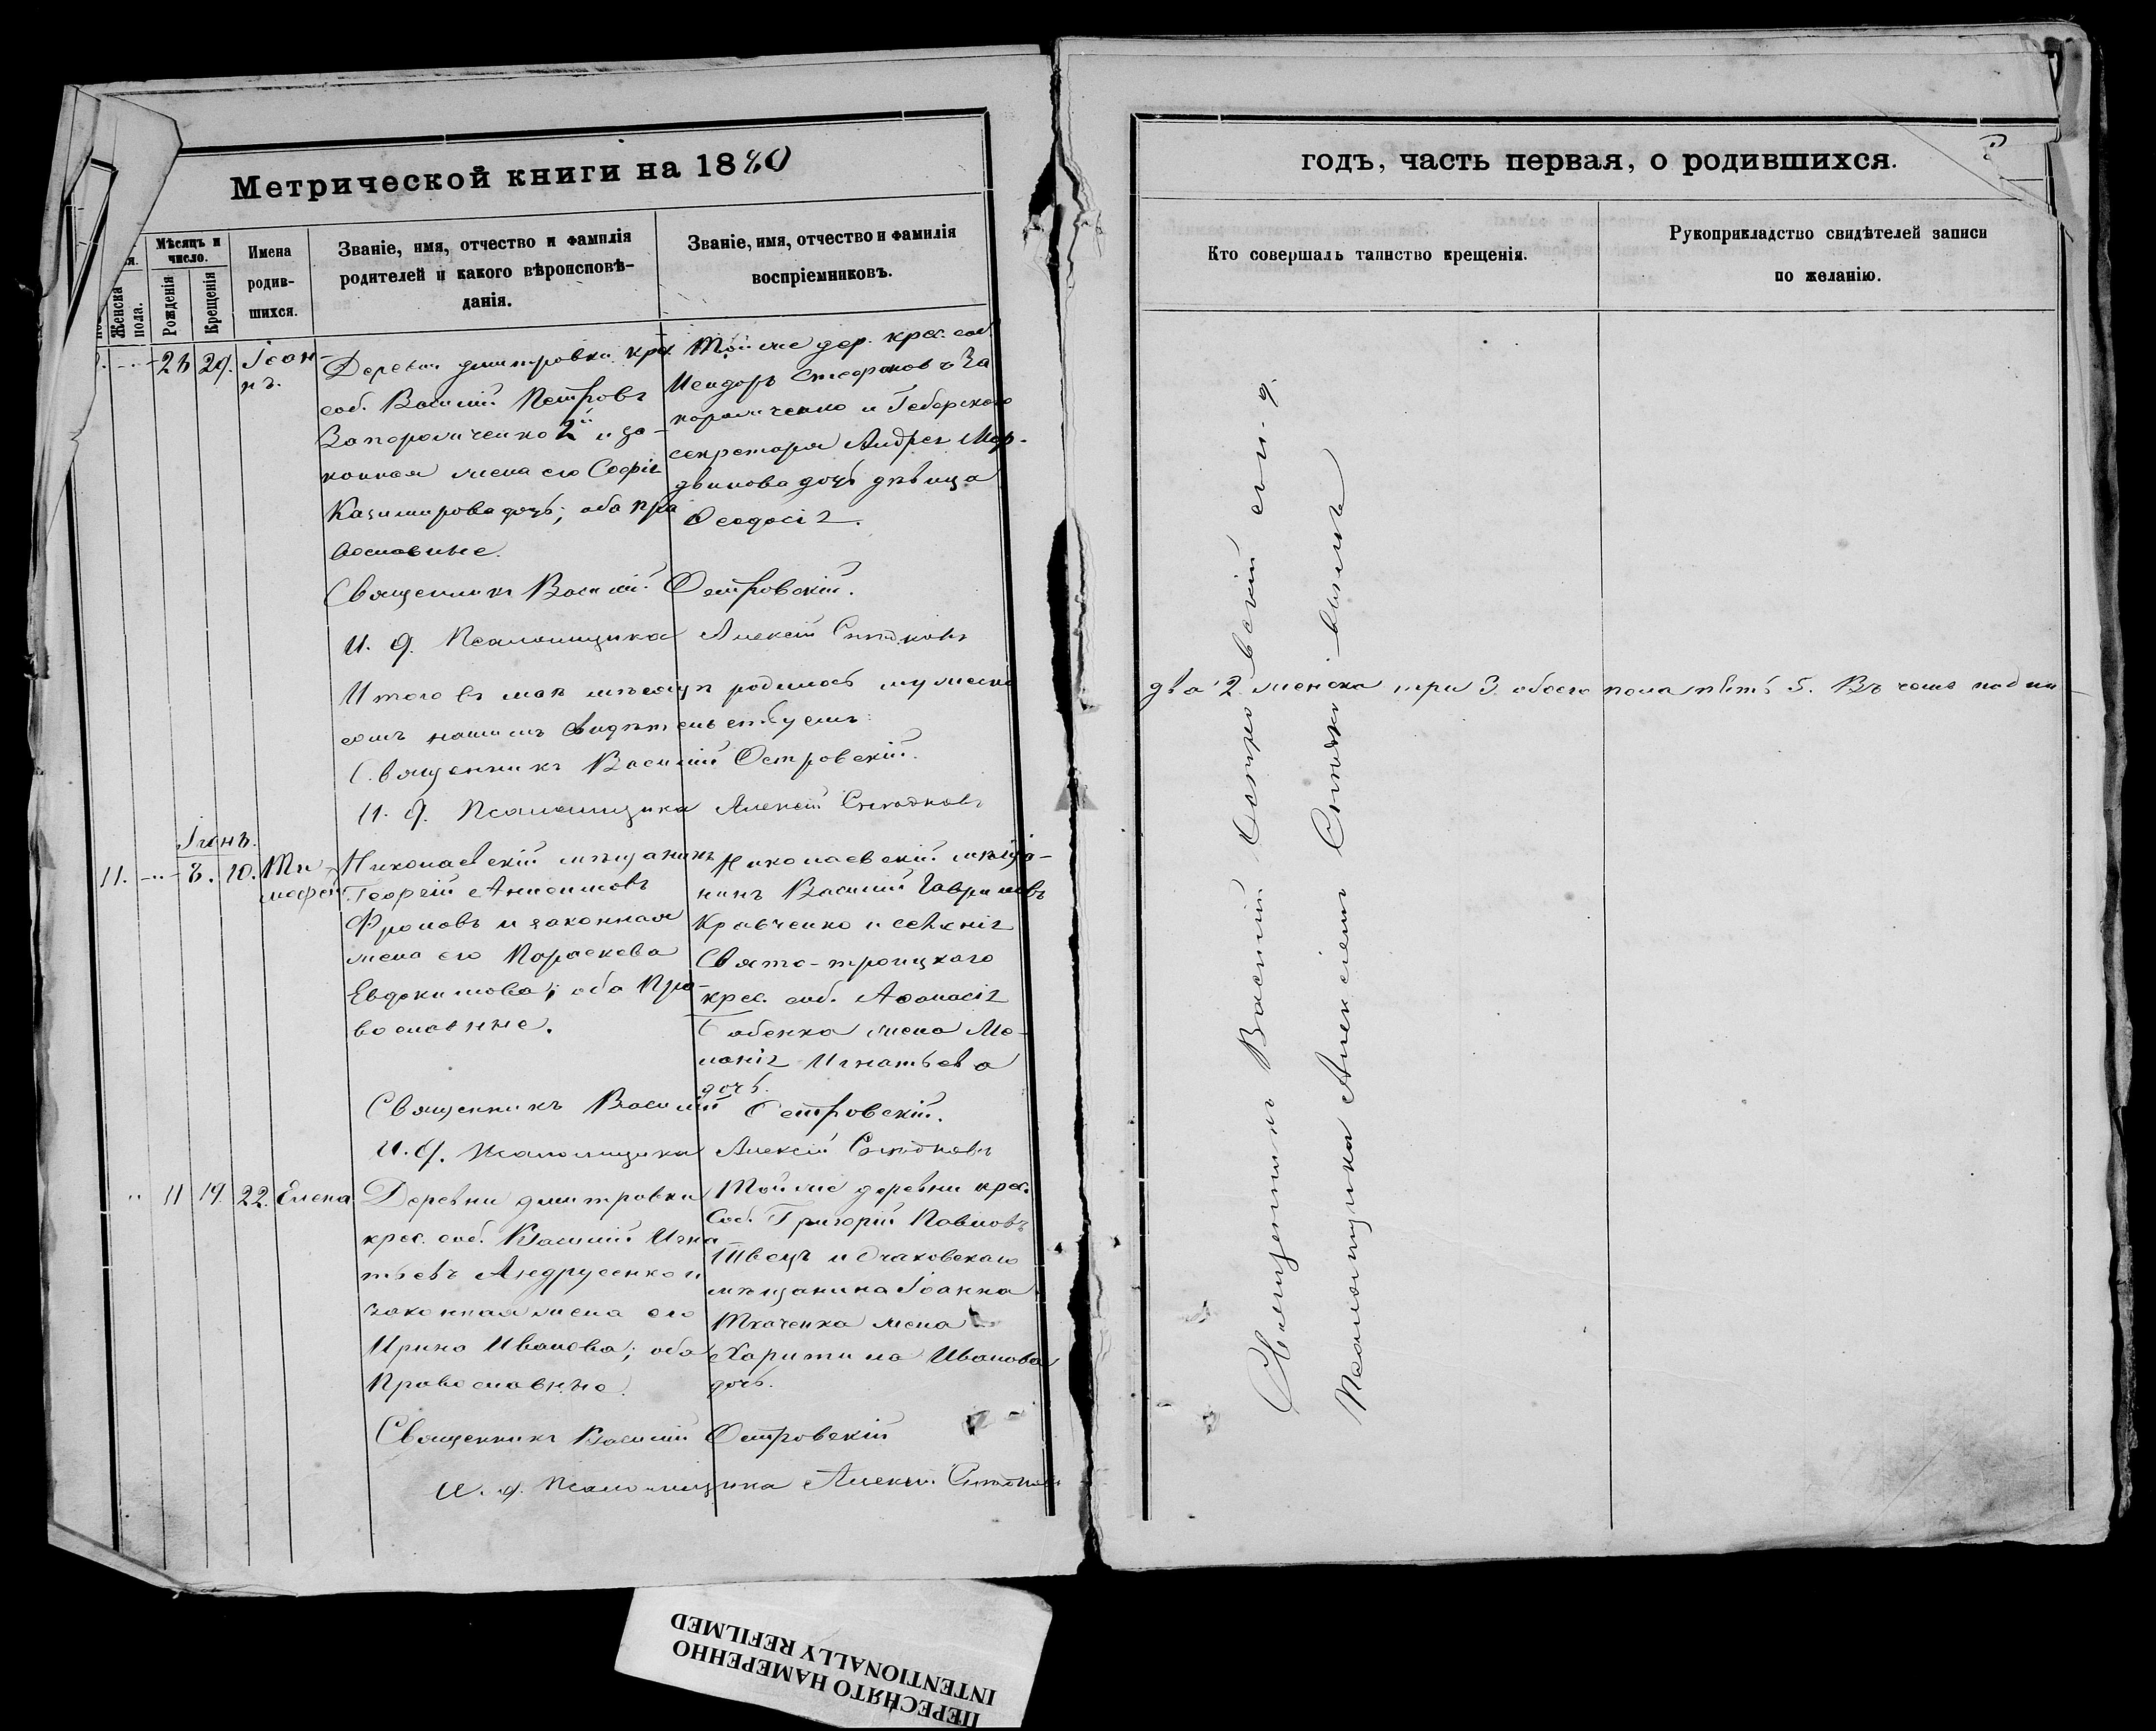 Метрической книги на 1880
годъ, часть первая, о родившихся.
Мѣсяцъ и число.
Женска пола.
Рожденія
Крещенія
Имена родив-шихся.
Званіе, имя, отчество и фамилія
родителей и какого вѣроисповѣ-
данія.
Званіе, имя, отчество и фамилія
воспріемниковъ.
Кто совершалъ таинство крещенія.
Рукоприкладство свидѣтелей записи
по желанію.
29. Іоан-
нъ.
Деревни дмитровки крес.
соб. Василій Петровъ
Запорожченко 2й и за-
конная жена его Софія
Казимирова дочь; оба пра
вославные.
Тойже дер. крес. соб.
Исидоръ Стефановъ За
порожченко и Геберского
секретаря Андрея Мор-
двинова дочь дѣвица
Ѳеодосія.
Священникъ Василій Островскій.
И. д. Псаломщика Алексій
Итого въ маѣ мѣсяцѣ родилось мужеска
два 2 женска три 3. обоего пола пять 5. Въ чемъ подпи
сомъ нашимъ свидѣтельствуемъ:
Священникъ Василій Островскій.
И. д. Псаломщика Алексій
Іюнь.
11. 8. 10. Ти-
мофей
Николаевскій мѣщанинъ
Георгій Анисимовъ
Фроловъ и законная
жена его Параскева
Евдокимова; оба Пра-
вославные.
Николаевскій мѣща-
нинъ Василій Гавриловъ
Кравченко и селенія
Свято-троицкаго
крес. соб. Аѳанасія
Бабенка жена Ме-
ланія Игнатьева
дочь.
Священникъ Василій Островскій.
И. д. Псаломщика Алексій
11 19. 22. Елена
Деревни дмитровки
крес. соб. Василій Игна
тьевъ Андрусенко и
законная жена его
Ирина Иванова; оба
Православные.
Тойже деревни крес.
Соб. Григорій Павловъ
Швецъ и Очаковскаго
мѣщанина Іоанна
Ткаченка жена
Харитина Иванова
дочь.
Священникъ Василій Островскій
И. д. Псаломщика Алексій
Священникъ Василій Островскій
Псаломщика Алексіемъ
ПЕРЕСНЯТО НАМЕРЕННО
INTENTIONALLY REFILMED